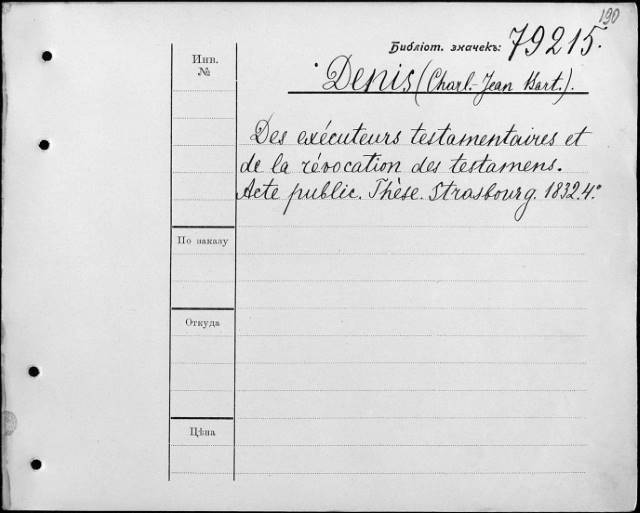 190
Библіот. значекъ: 79215.
Инв.
№
Denis (Charl.-Jean Bart.).
Des exécuteurs testamentaires et
de la révocation des testamens.
Acte public. Thèse. Strasbourg. 1832. 4.°
По заказу
Откуда
Цѣна